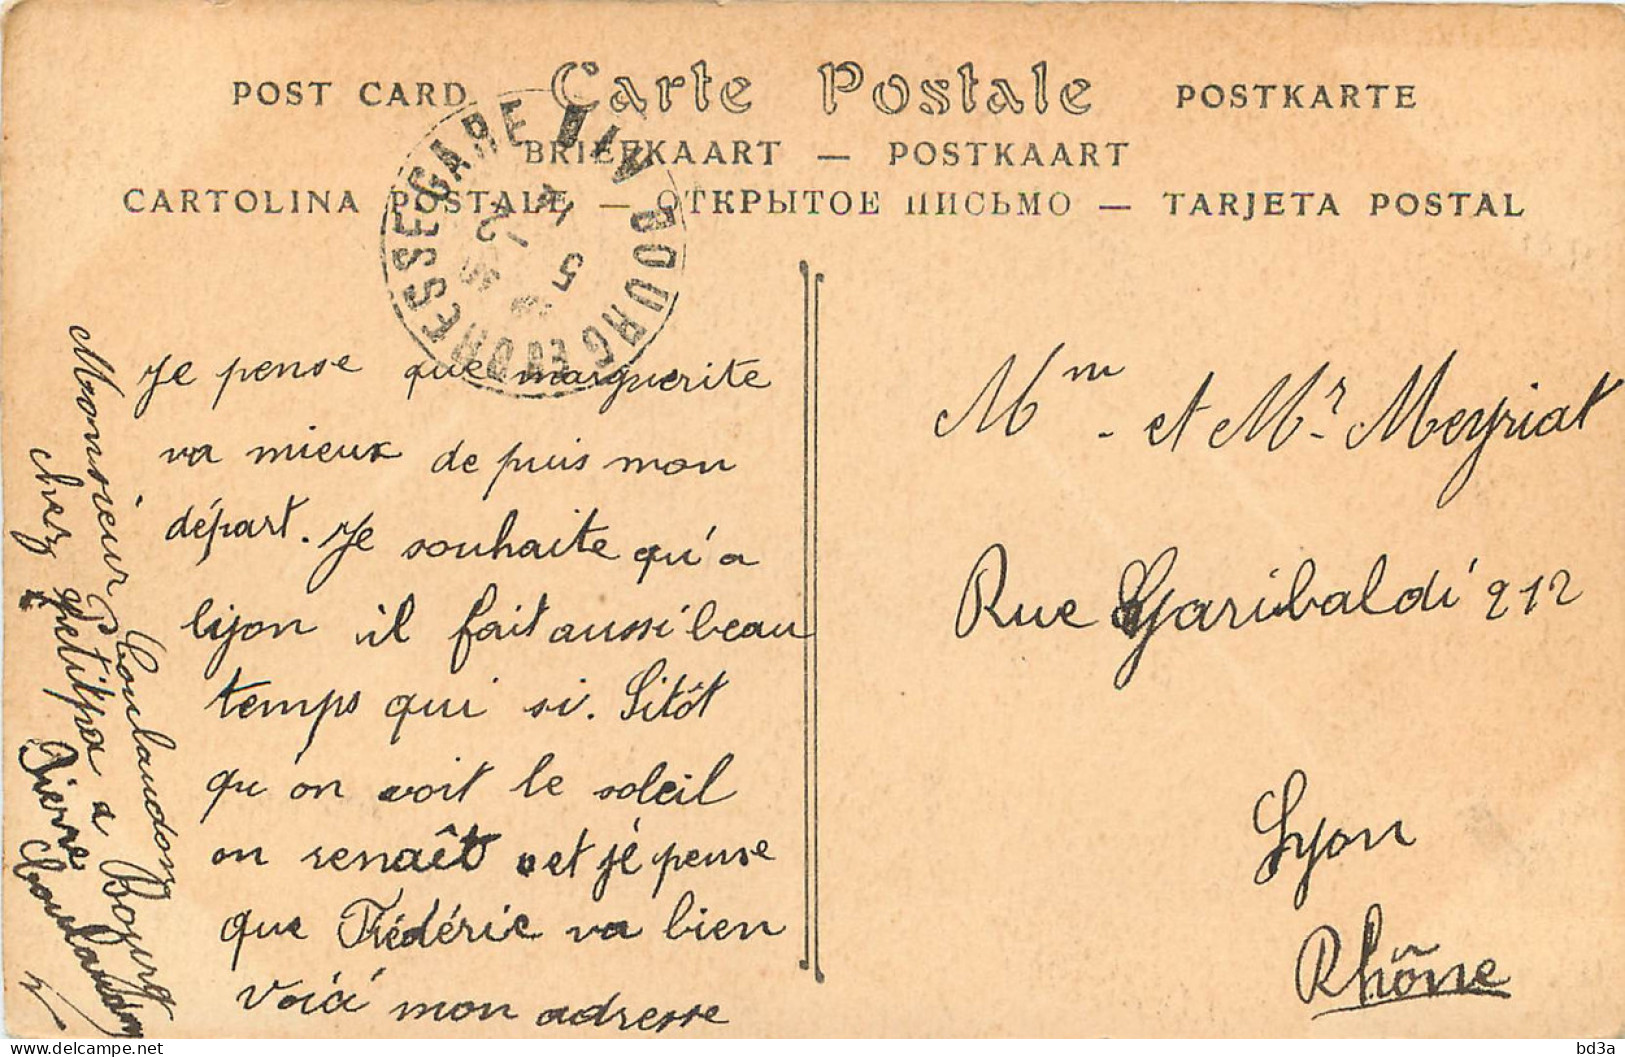 POST CARD Carte Postale POSTKARTE
BRIEFKAART — POSTKAART
CARTOLINA POSTALE — ОТКРЫТОЕ ПИСЬМО — TARJETA POSTAL
GARE BOURG EN BRESSE
Je pense que marguerite
va mieux de puis mon
départ. Je souhaite qu'a
lijon il fait aussi beau
temps qui si. Sitôt
qu on voit le soleil
on renaît et jé pense
que Frédéric va bien
Voiá mon adresse
Monsiéur Coulaudon
chez Petitpa a Bourg
Pierre Coulaudon
Mm et Mr Meyriat
Rue Garibaldi 212
Lyon
Rhône
bd3a